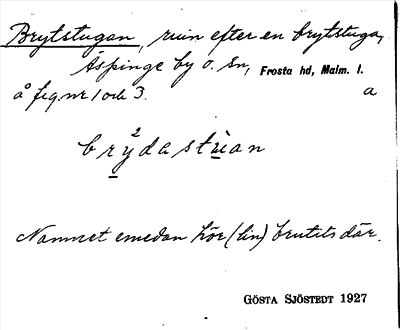 Brytstugan, ruin efter en brytstuga,
Äspinge by o. Sn, Frosta hd, Malm. l.
å fig. nr 1 och 3. a
brýdastùan
Namnet emedan hör (lin) brutits där.
GÖSTA SJÖSTEDT 1927